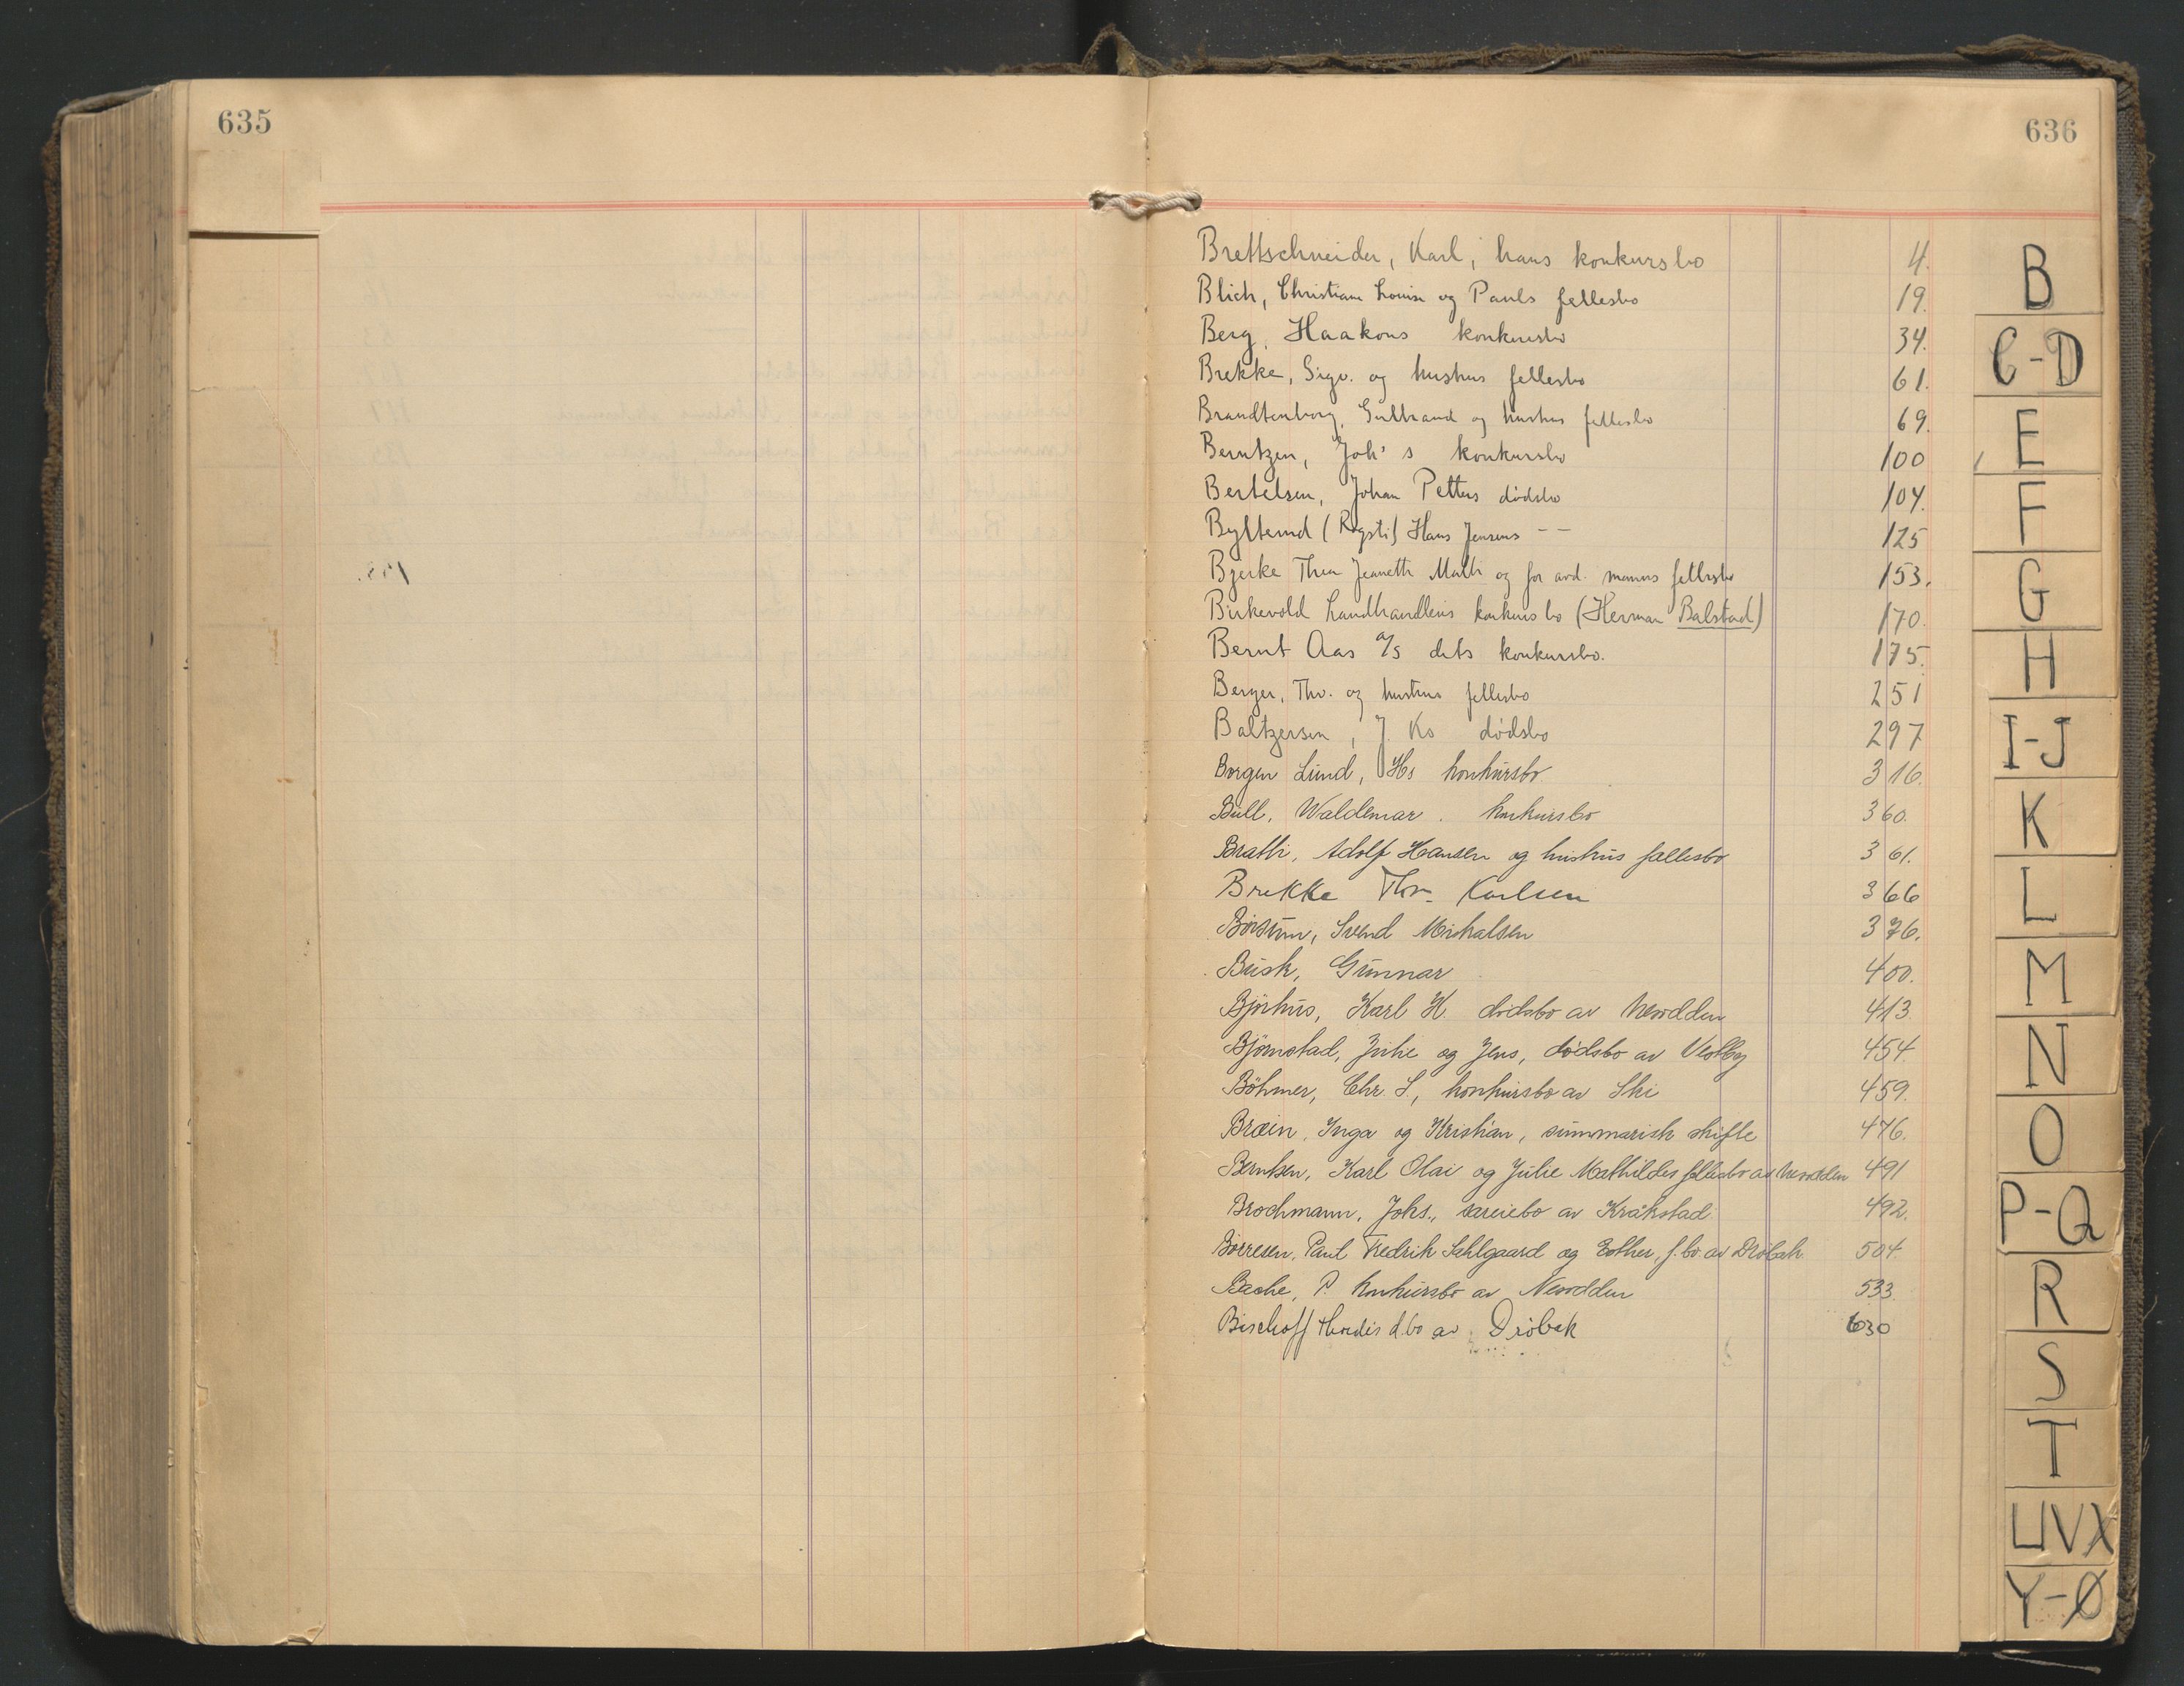 635
636
Brettschneider, Karl, hans konkursbo 4.
Blich, Christiane Louise og Pauls fellesbo 19.
Berg, Haakons konkursbo 34.
Brekke, Sigv. og hustrus fellesbo 61.
Brandtenborg, Gulbrand og hustrus fellesbo 69.
Berntzen, Joh's konkursbo 100
Bertelsen, Johan Petters dødsbo 104.
Hans Jensens – – 125
Bjerke Thea Jeanette Mathi og for avd. manns fellesbo 153.
Birkevold Landhandleris konkursbo (Herman Balstad) 170.
Bernt Aas A/S dets konkursbo. 175.
Berger, Thv. og hustrus fellesbo 251
Baltzersen, J. Ks dødsbo 297
Borgen Lund, Hs konkursbo. 316.
Bull, Waldemar. konkursbo 360.
Bratli, Adolf Hansen og hustrus fellesbo 361.
Brekke Thv. Karlsen 366
Börsum, Svend Mikalsen 376.
Busk, Gunnar 400.
Björhus, Karl H. dödsbo av Nesodden 413.
Björnstad, Julie og Jens, dødsbo av Vestby 454.
Böhmer, Chr. S., konkursbo av Ski 459.
Bræin, Inga og Kristian, summarisk skifte 476.
Berntsen, Karl Olai og Julie Mathildes fellesbo av Nesodden 491
Brochmann, Johs., særeiebo av Kråkstad 492.
Börresen, Paul Fredrik Sahlgaard og Esther, f.bo. av Dröbak 504.
P. konkursbo av Nesodden 533.
Bischoff Hordis d.bo av Dröbak 630
B
C-D
E
F
G
H
I-J
K
L
M
N
O
P-Q
R
S
T
UVX
Y-Ø